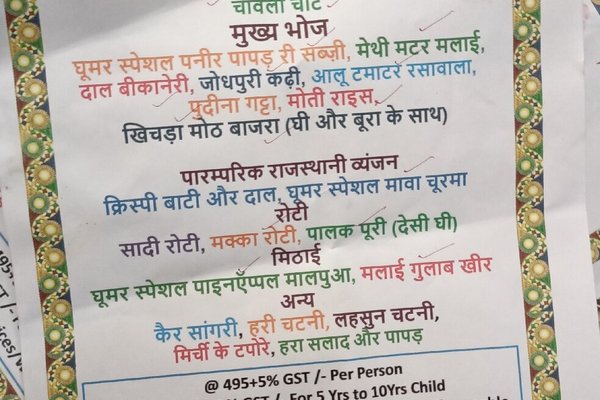 चावला चाट
मुख्य भोज
घूमर स्पेशल पनीर पापड़ री सब्ज़ी, मेथी मटर मलाई,
दाल बीकानेरी, जोधपुरी कढ़ी, आलू टमाटर रसावाला,
पुदीना गट्टा, मोती राइस,
खिचड़ा मोठ बाजरा (घी और बूरा के साथ)
पारम्परिक राजस्थानी व्यंजन
क्रिस्पी बाटी और दाल, घूमर स्पेशल मावा चूरमा
रोटी
सादी रोटी, मक्का रोटी, पालक पूरी (देसी घी)
मिठाई
घूमर स्पेशल पाइनऍप्पल मालपुआ, मलाई गुलाब खीर
अन्य
कैर सांगरी, हरी चटनी, लहसुन चटनी,
मिर्ची के टपोरे, हरा सलाद और पापड़
@ 495+5% GST /- Per Person
GST /- For 5 Yrs to 10Yrs Child